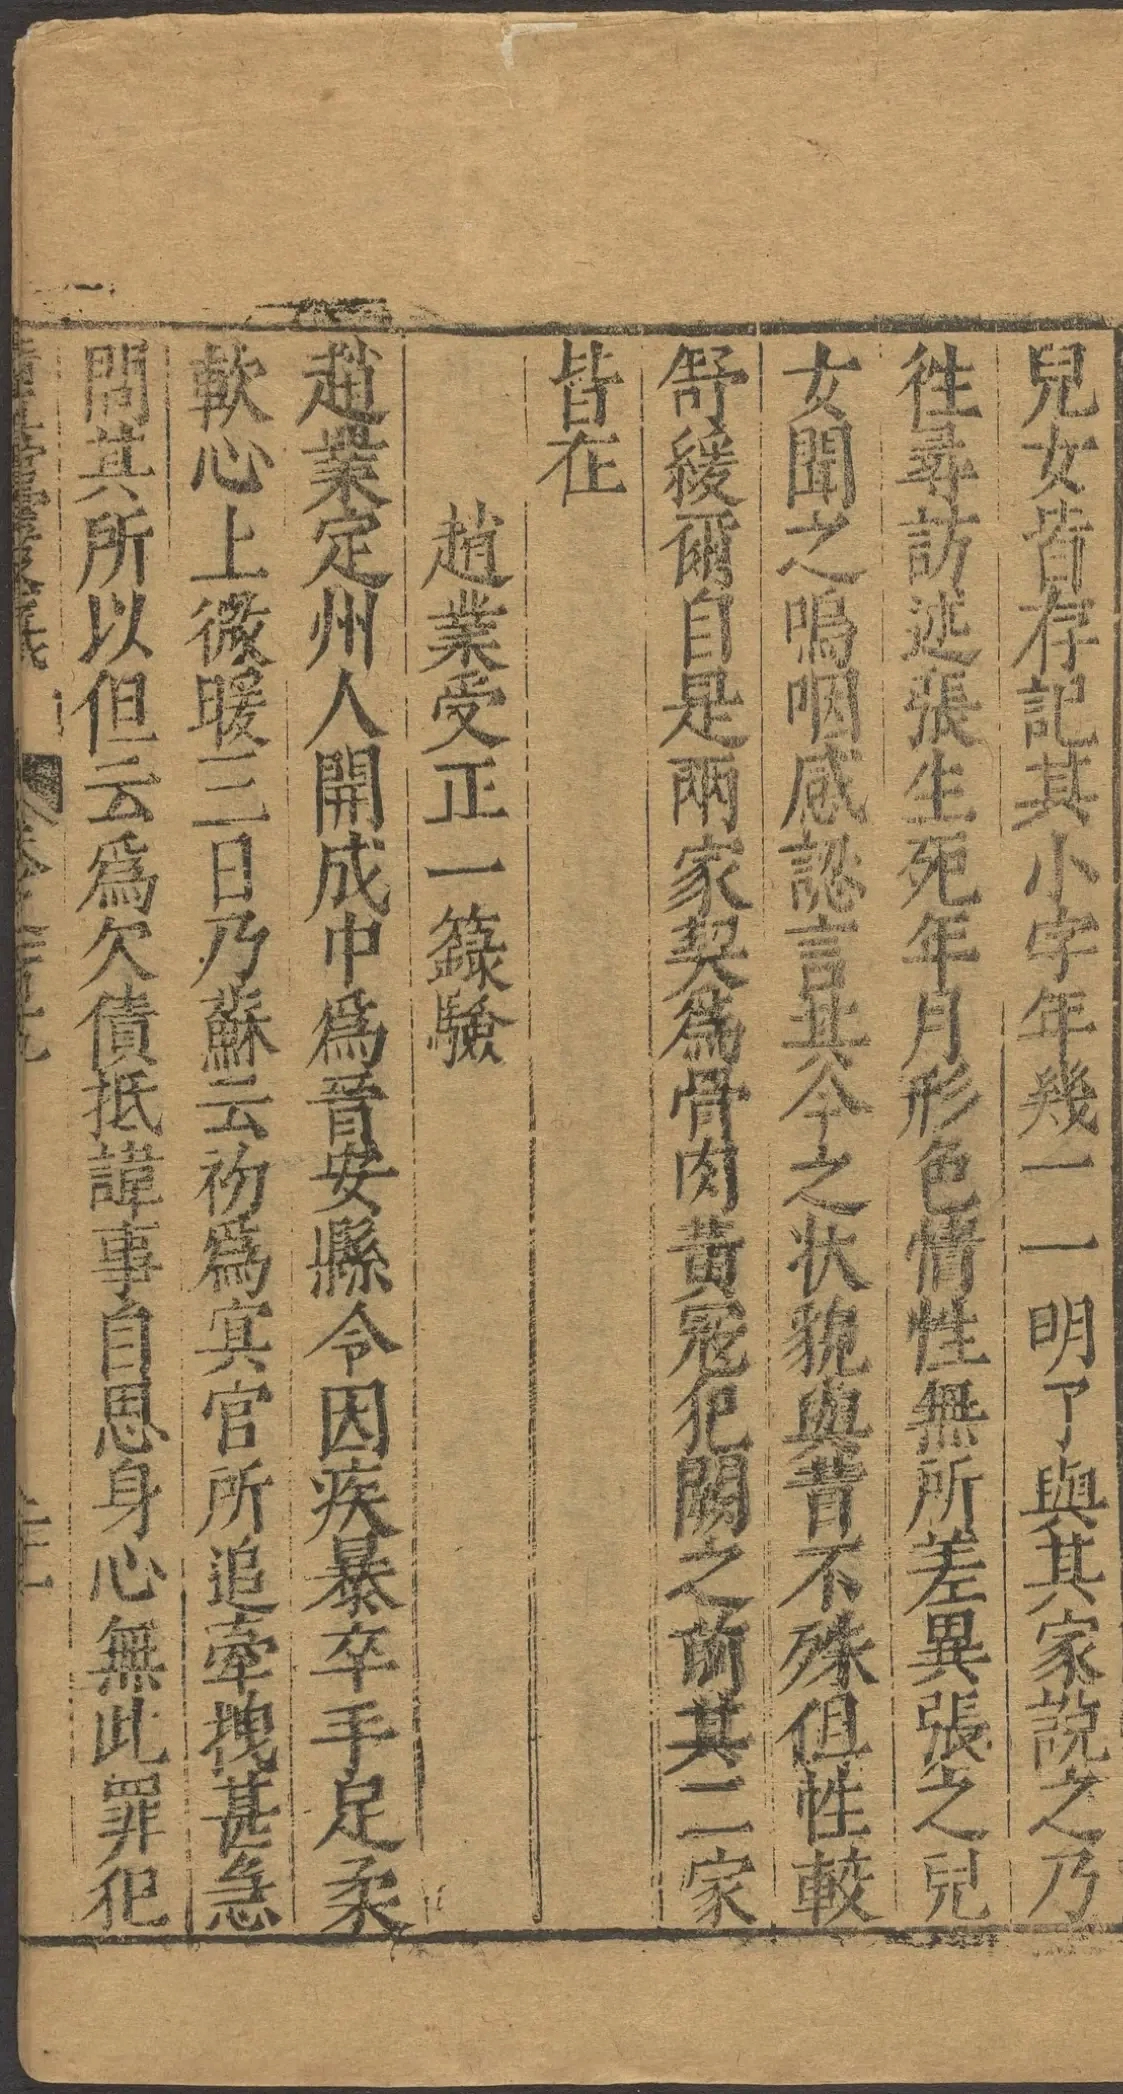 兒女皆存記其小字年幾一一明了與其家說之乃
徃尋訪述張生死年月形色情性無所差異張之兒
女聞之嗚咽感認言其今之状貌與昔不殊但性較
舒緩爾自是兩家契為骨肉黃冦犯闕之前其二家
皆在
趙業受正一籙驗
趙業定州人開成中為晉安縣令因疾暴卒手足柔
軟心上微暖三日乃蘇云初為冥官所追牽拽甚急
問其所以但云為欠債抵諱事自思身心無此罪犯